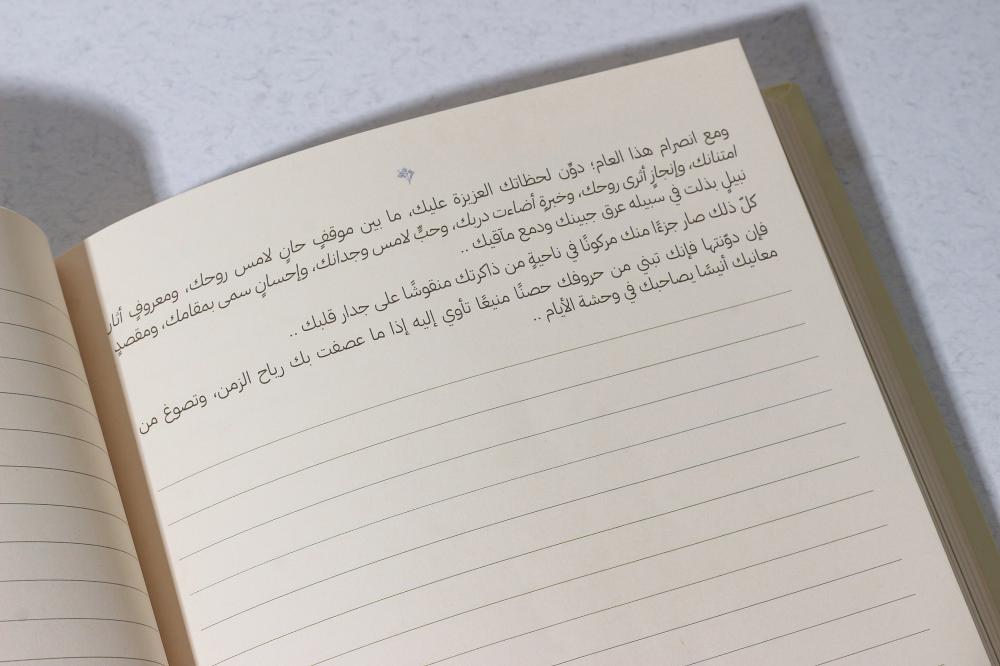 ومع انصرام هذا العام؛ دوِّن لحظاتك العزيزة عليك، ما بين موقفٍ حانٍ لامس روحك، ومعروفٍ أثار
امتنانك، وإنجازٍ أثرى روحك، وخبرةٍ أضاءت دربك، وحبٍّ لامس وجدانك، وإحسانٍ سمى بمقامك، ومقصدٍ
نبيلٍ بذلت في سبيله عرق جبينك ودمع مآقيك ..
كلّ ذلك صار جزءًا منك مركونًا في ناحيةٍ من ذاكرتك منقوشًا على جدار قلبك ..
فإن دوّنتها فإنك تبني من حروفك حصنًا منيعًا تأوي إليه إذا ما عصفت بك رياح الزمن، وتصوغ من
معانيك أنيسًا يصاحبك في وحشة الأيام ..